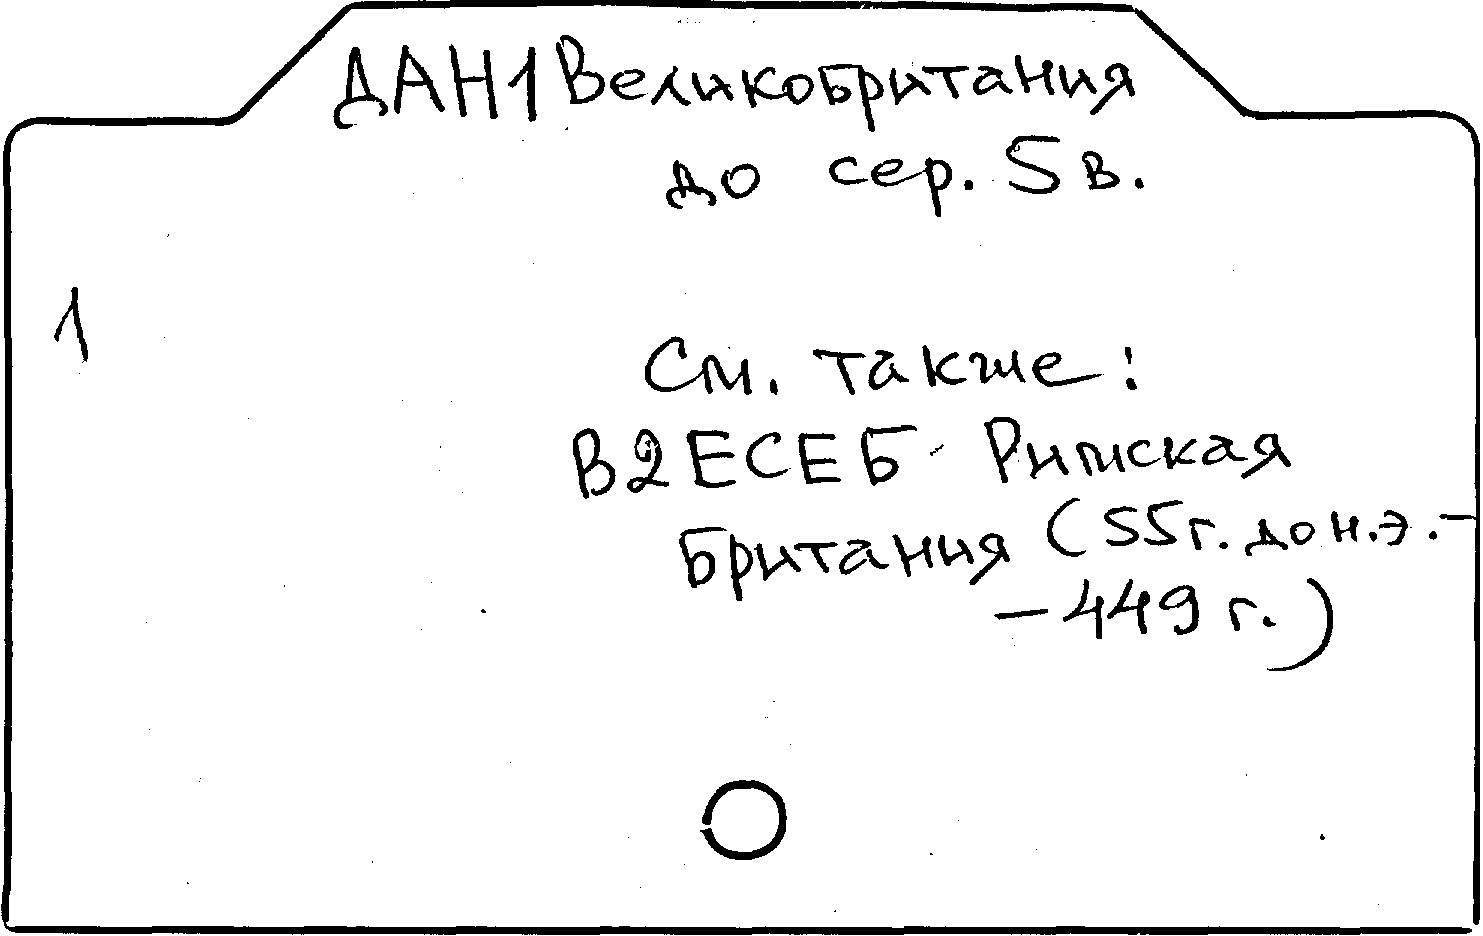 ДАН1 Великобритания
до сер. 5 в.
1
См. также:
В2ЕСЕБ - Римская
Британия (55 г. до н.э. -
- 449 г.)